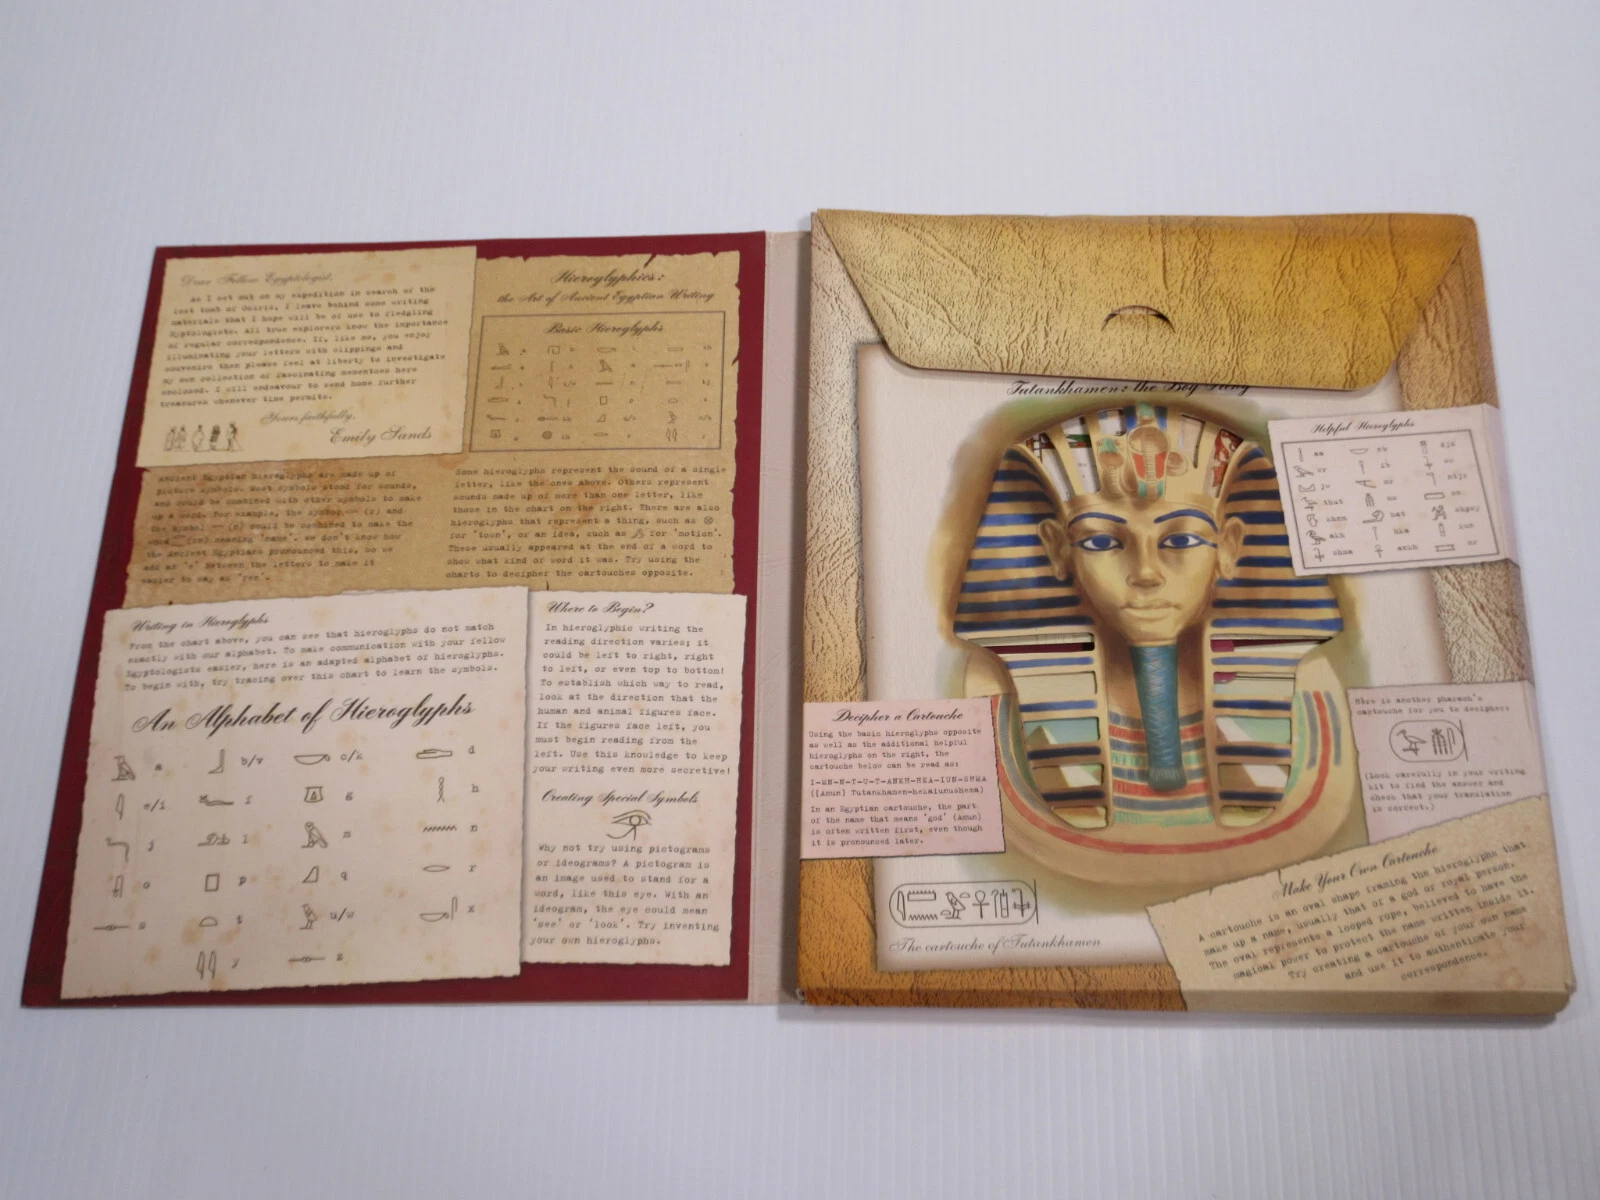 Dear Fellow Egyptologist,
As I set out on my expedition in search of the
lost tomb of Osiris, I leave behind some writing
materials that I hope will be of use to fledgling
Egyptologists. All true explorers know the importance
of regular correspondence. If, like me, you enjoy
illuminating your letters with clippings and
souvenirs then please feel at liberty to investigate
my own collection of fascinating mementoes here
enclosed. I will endeavour to send home further
treasures whenever time permits.
Yours faithfully,
Emily Sands
Hieroglyphics:
the Art of Ancient Egyptian Writing
Basic Hieroglyphs
Ancient Egyptian hieroglyphs are made up of
picture symbols. Most symbols stood for sounds,
and could be combined with other symbols to make
up a word. For example, the symbol (r) and
the symbol (n) could be combined to make the
word (rn) meaning 'name'. We don't know how
the Ancient Egyptians pronounced this, so we
add an 'e' between the letters to make it
easier to say as 'ren'.
Some hieroglyphs represent the sound of a single
letter, like the ones above. Others represent
sounds made up of more than one letter, like
those in the chart on the right. There are also
hieroglyphs that represent a thing, such as
for 'town', or an idea, such as for 'motion'.
These usually appeared at the end of a word to
show what kind of word it was. Try using the
charts to decipher the cartouches opposite.
Writing in Hieroglyphs
From the chart above, you can see that hieroglyphs do not match
exactly with our alphabet. To make communication with your fellow
Egyptologists easier, here is an adapted alphabet of hieroglyphs.
To begin with, try tracing over this chart to learn the symbols.
An Alphabet of Hieroglyphs
a b/v c/k d
e/i f g h
j l m n
o p q r
s t u/w x
y z
Where to Begin?
In hieroglyphic writing the
reading direction varies; it
could be left to right, right
to left, or even top to bottom!
To establish which way to read,
look at the direction that the
human and animal figures face.
If the figures face left, you
must begin reading from the
left. Use this knowledge to keep
your writing even more secretive!
Creating Special Symbols
Why not try using pictograms
or ideograms? A pictogram is
an image used to stand for a
word, like this eye. With an
ideogram, the eye could mean
'see' or 'look'. Try inventing
your own hieroglyphs.
Tutankhamen: the Boy King
Helpful Hieroglyphs
aa nb djd
wr ib
ntjr
thut
khnm hat shpsy
akh hka iun
shma ankh mr
Decipher a Cartouche
Using the basic hieroglyphs opposite
as well as the additional helpful
hieroglyphs on the right, the
cartouche below can be read as:
I-MN-N-T-U-T-ANKH-HKA-IUN-SHMA
([Amun] Tutankhamen-hekaiunushema)
In an Egyptian cartouche, the part
of the name that means 'god' (Amun)
is often written first, even though
it is pronounced later.
The cartouche of Tutankhamen
Here is another pharaoh's
cartouche for you to decipher:
(Look carefully in your writing
kit to find the answer and
check that your translation
is correct.)
Make Your Own Cartouche
A cartouche is an oval shape framing the hieroglyphs that
make up a name, usually that of a god or royal person.
The oval represents a looped rope, believed to have the
magical power to protect the name written inside it.
Try creating a cartouche of your own name
and use it to authenticate your
correspondence.